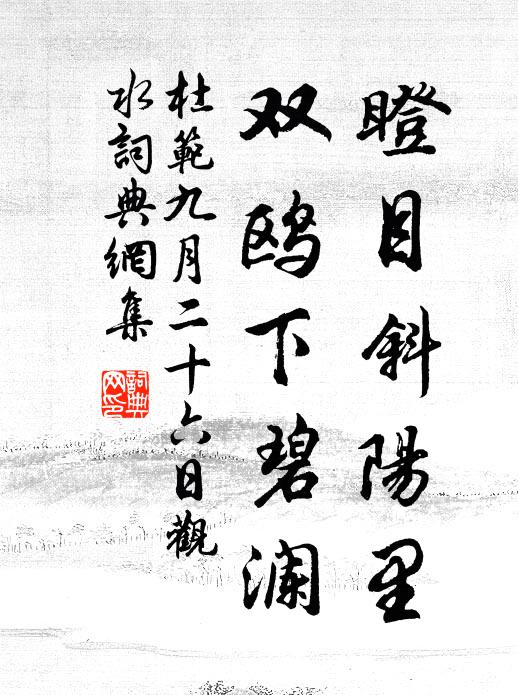 瞪目斜陽里
双鸥下碧澜
杜範九月二十六日觀
水詞典網集
詞典
网印